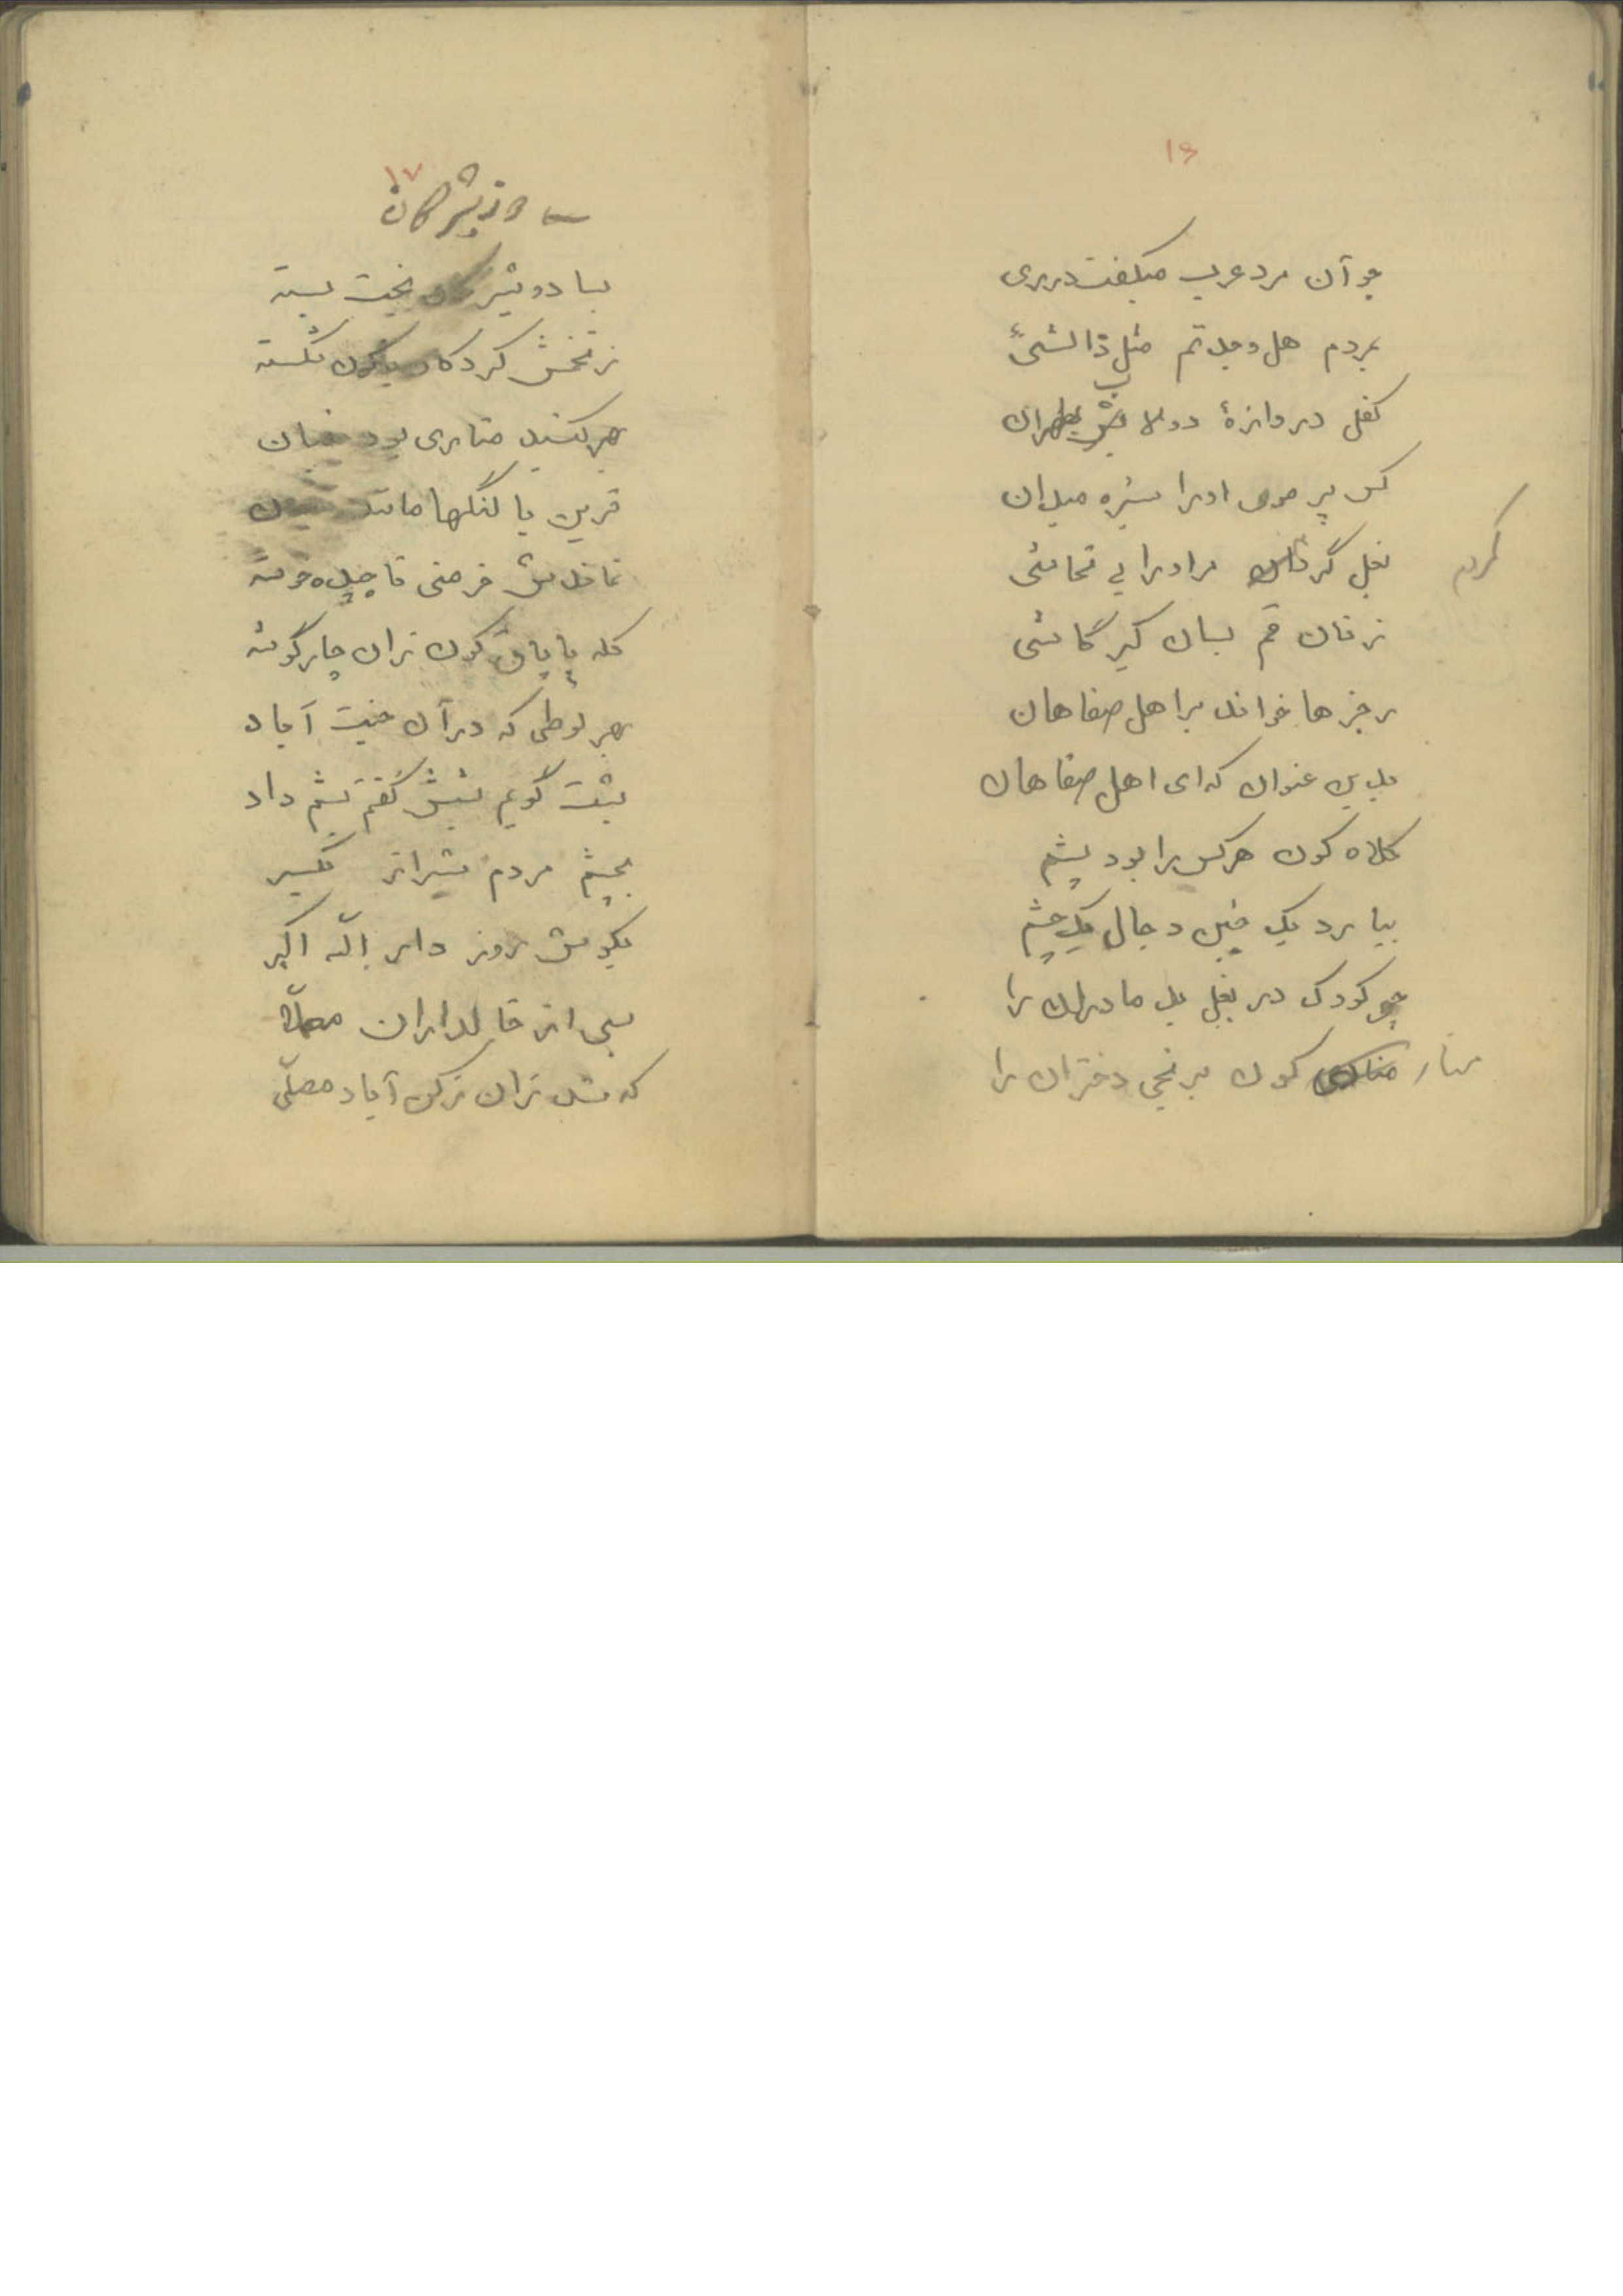 ۱۶
چو آن مرد عرب میگفت در ری
بمردم هل وجدتم مثل ذا لشیً
کفل دروازهٔ دولاب طهران
کس پر موی او را سبزه میدان
بغل کرد مر او را بی تحاشی
کردم
زنان قم بسان کیر کاشی
رجزها خواند بر اهل صفاهان
بدین عنوان که ای اهل صفاهان
کلاه کون هر کس را بود پشم
بیارد یک چنین دجال یک چشم
چو کودک در بغل بد مادران را
منار کون برنجی دختران را
۱۷
دوشیزگان
بسا دوشیزگان بخت بسته
ز تخمش گردکان شکسته
بهر گنبد مناری بود
قرین با لنگها مانند
نماندش فرصتی تا چیده خوشه
کله پاپاق کون زان چارگوشه
بهر لوطی که در آن جنت آباد
بشت گویم بشش گفتم بشم داد
بچشم مردم شیراز یکسر
بکونش روز دار الله اکبر
بسی از خالداران
که شد زان رکن آباد مصلّی